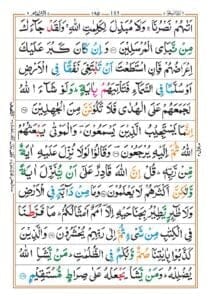 اَتٰىهُمْ نَصْرُنَا ۚ وَلَا مُبَدِّلَ لِكَلِمٰتِ اللّٰهِ ۚ وَلَقَدْ جَآءَكَ
مِنْ نَّبَاِی الْمُرْسَلِيْنَ وَاِنْ كَانَ كَبُرَ عَلَيْكَ
اِعْرَاضُهُمْ فَاِنِ اسْتَطَعْتَ اَنْ تَبْتَغِيَ نَفَقًا فِي الْاَرْضِ
اَوْ سُلَّمًا فِي السَّمَآءِ فَتَاْتِيَهُمْ بِاٰيَةٍ ؕ وَلَوْ شَآءَ اللّٰهُ
لَجَمَعَهُمْ عَلَى الْهُدٰى فَلَا تَكُوْنَنَّ مِنَ الْجٰهِلِيْنَ
اِنَّمَا يَسْتَجِيْبُ الَّذِيْنَ يَسْمَعُوْنَ ؕ وَالْمَوْتٰى يَبْعَثُهُمُ
اللّٰهُ ثُمَّ اِلَيْهِ يُرْجَعُوْنَ وَقَالُوْا لَوْلَا نُزِّلَ عَلَيْهِ اٰيَةٌ
مِّنْ رَّبِّهٖ ؕ قُلْ اِنَّ اللّٰهَ قَادِرٌ عَلٰٓى اَنْ يُّنَزِّلَ اٰيَةً
وَّلٰكِنَّ اَكْثَرَهُمْ لَا يَعْلَمُوْنَ وَمَا مِنْ دَآبَّةٍ فِي الْاَرْضِ
وَلَا طٰٓئِرٍ يَّطِيْرُ بِجَنَاحَيْهِ اِلَّآ اُمَمٌ اَمْثَالُكُمْ ؕ مَا فَرَّطْنَا
فِي الْكِتٰبِ مِنْ شَيْءٍ ثُمَّ اِلٰى رَبِّهِمْ يُحْشَرُوْنَ وَالَّذِيْنَ
كَذَّبُوْا بِاٰيٰتِنَا صُمٌّ وَّبُكْمٌ فِي الظُّلُمٰتِ ؕ مَنْ يَّشَاِ اللّٰهُ
يُضْلِلْهُ ؕ وَمَنْ يَّشَاْ يَجْعَلْهُ عَلٰى صِرَاطٍ مُّسْتَقِيْمٍ